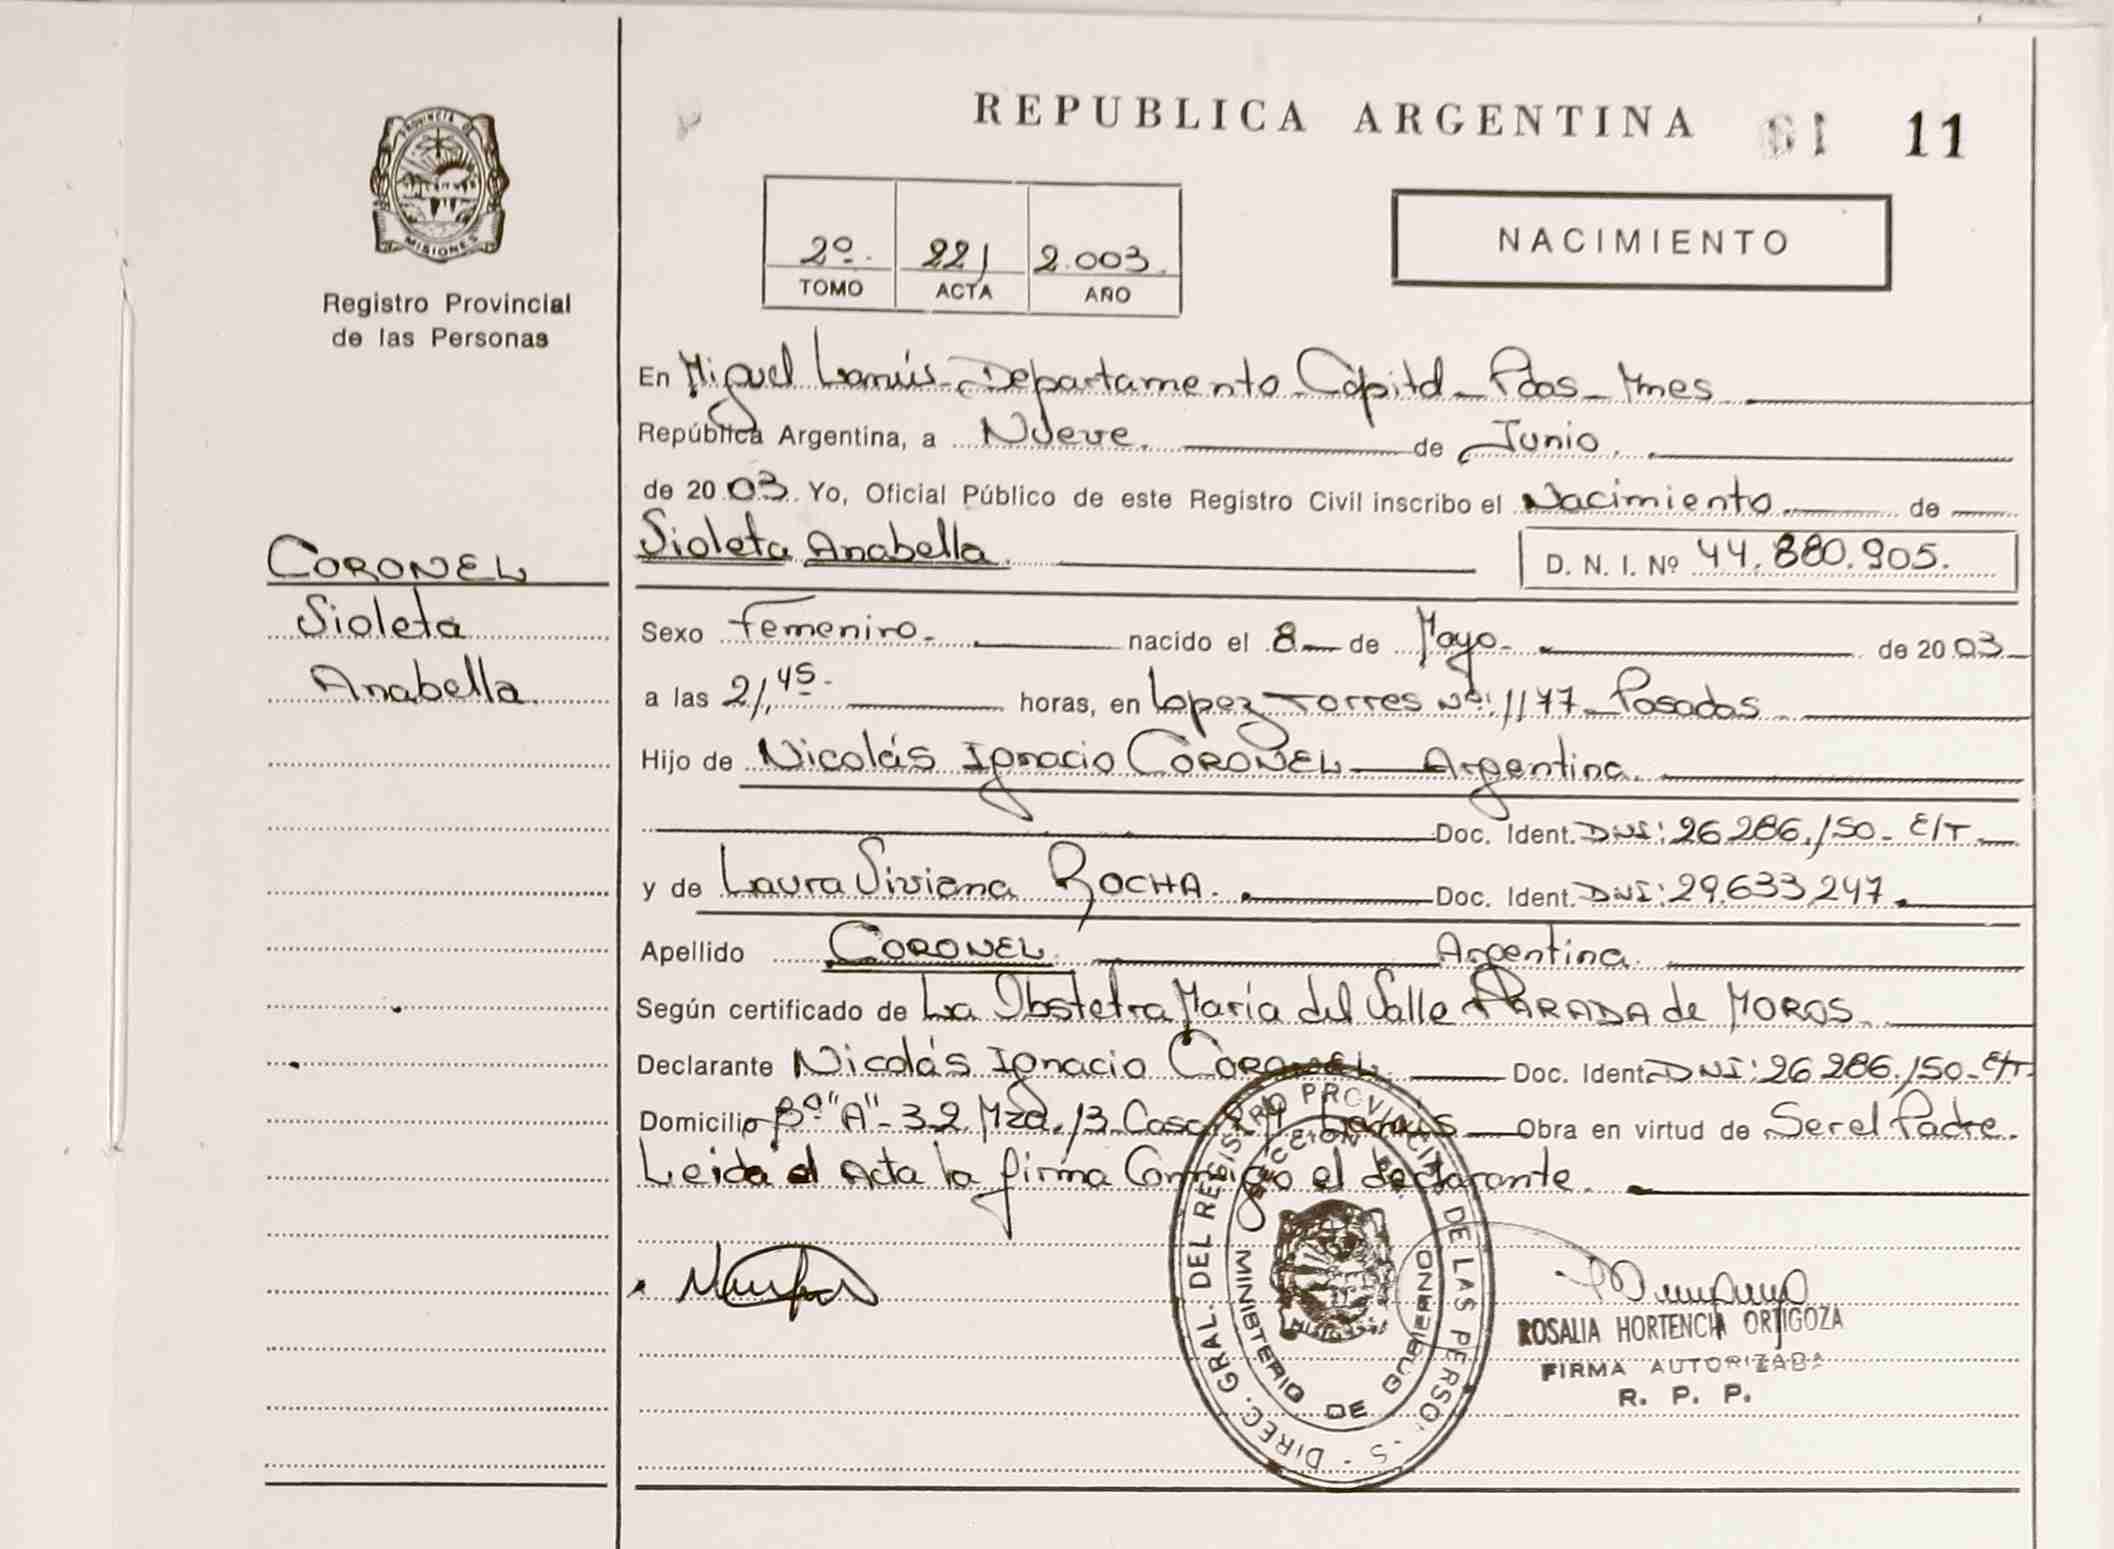 REPUBLICA ARGENTINA 11
PROVINCIA DE
MISIONES
Registro Provincial
de las Personas
2º. 221 2.003.
TOMO ACTA AÑO
NACIMIENTO
En Miguel Lanús - Departamento Capital - Pdas - Mnes
República Argentina, a Nueve. de Junio.
de 20 03. Yo, Oficial Público de este Registro Civil inscribo el Nacimiento de
Violeta Anabella. D. N. I. Nº 44.880.905.
CORONEL
Violeta
Anabella
Sexo Femenino. nacido el 8 de Mayo. de 20 03
a las 21,45. horas, en Lopez Torres Nº: 1177 - Posadas
Hijo de Nicolás Ignacio CORONEL Argentina.
Doc. Ident. DNI: 26 286.150 - E/T
y de Laura Viviana ROCHA. Doc. Ident. DNI: 29.633.247.
Apellido CORONEL Argentina.
Según certificado de La Obstetra María del Valle PARADA de MOROS.
Declarante Nicolás Ignacio CORONEL. Doc. Ident. DNI: 26 286.150 - E/T.
Domicilio Bº "A" - 32 Mzd. 13 Casa Lanús Obra en virtud de Ser el Padre.
Leida el Acta la firma Conmigo el declarante.
DIREC. GRAL. DEL REGISTRO PROVINCIAL DE LAS PERSO
MINISTERIO DE GOBIERNO
ROSALIA HORTENCIA ORTIGOZA
FIRMA AUTORIZADA
R. P. P.